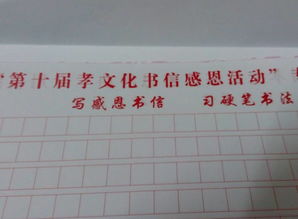 “第十届孝文化书信感恩活动”
写感恩书信 习硬笔书法